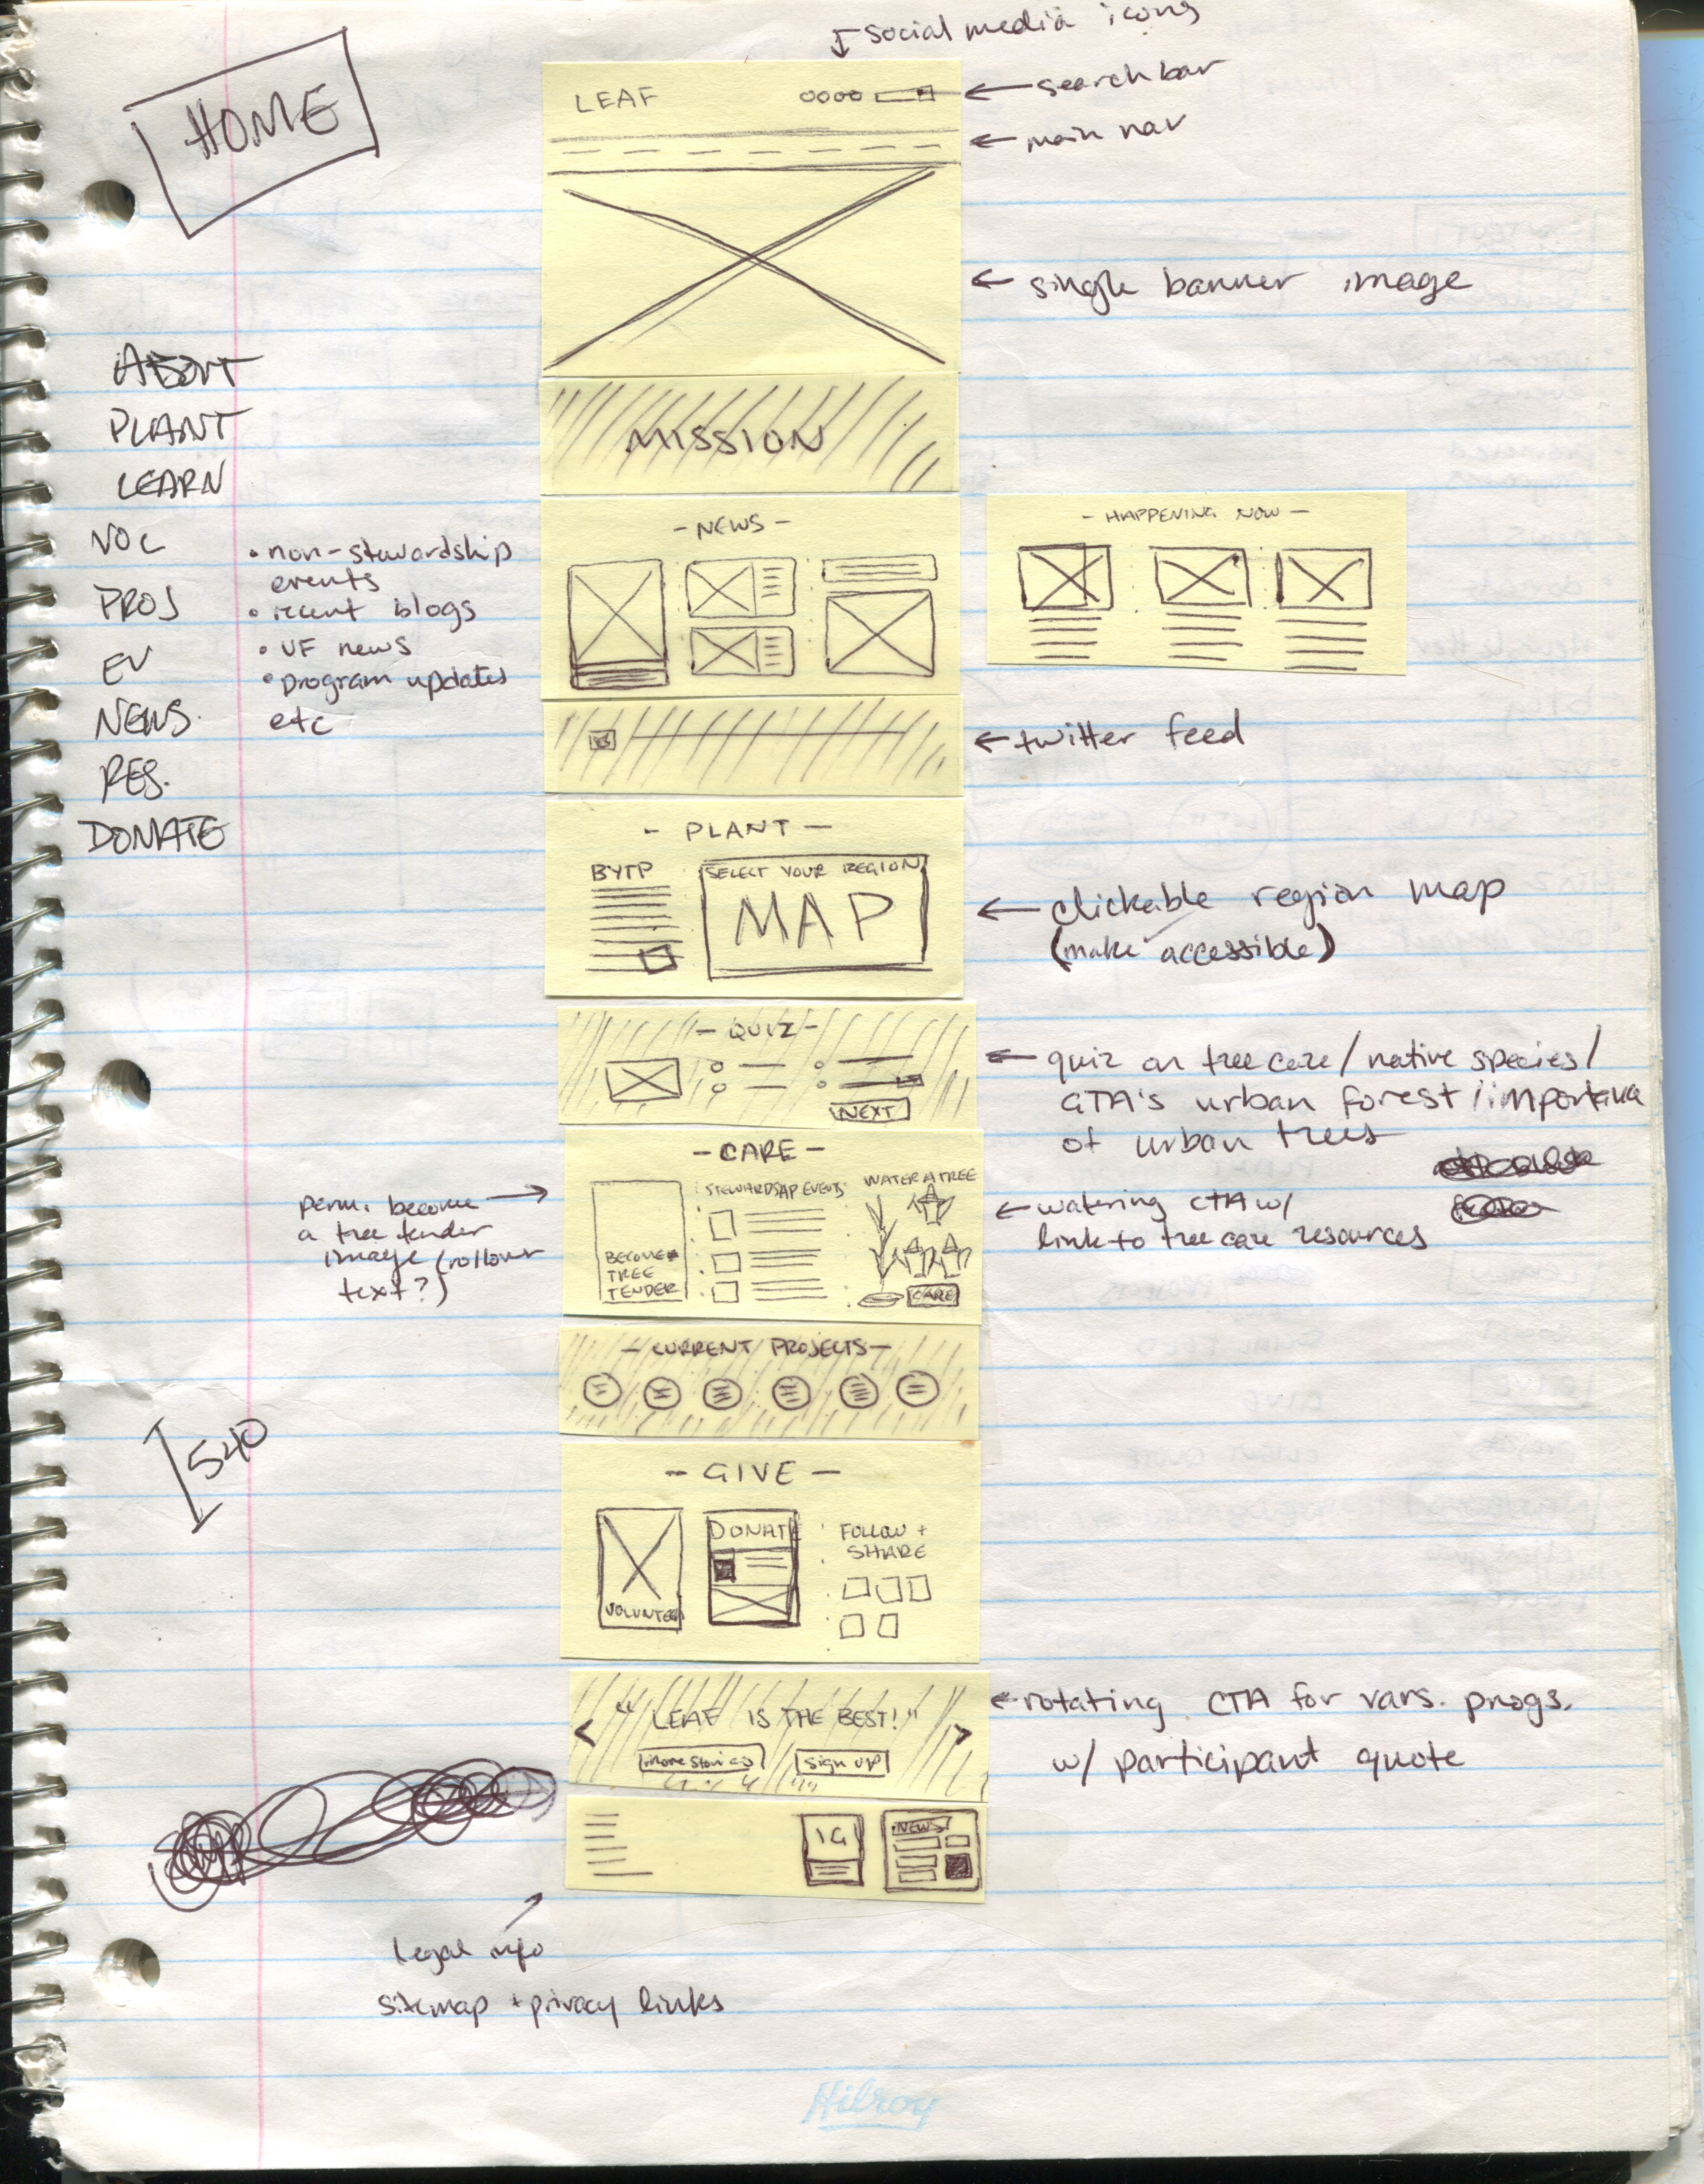 ↓ social media icons
HOME
LEAF
← search bar
← main nav
← single banner image
ABOUT
PLANT
LEARN
VOL
PROJ
EV
NEWS
RES.
DONATE
• non-stewardship
events
• recent blogs
• UF news
• program updates
etc
MISSION
- NEWS -
- HAPPENING NOW -
← twitter feed
- PLANT -
BYTP
SELECT YOUR REGION
MAP
← clickable region map
(make accessible)
- QUIZ -
NEXT
← quiz on tree care/native species/
GTA's urban forest/importance
of urban trees
- CARE -
BECOME A
TREE
TENDER
STEWARDSHIP EVENTS
WATER A TREE
CARE
perm. become
a tree tender
image (rollover
text?)
← watering CTA w/
link to tree care resources
- CURRENT PROJECTS -
540
- GIVE -
VOLUNTEER
DONATE
FOLLOW +
SHARE
< "LEAF IS THE BEST!" >
more stories
sign up
← rotating CTA for vars. progs.
w/ participant quote
IG
NEWS
legal info
sitemap + privacy links
Hilroy